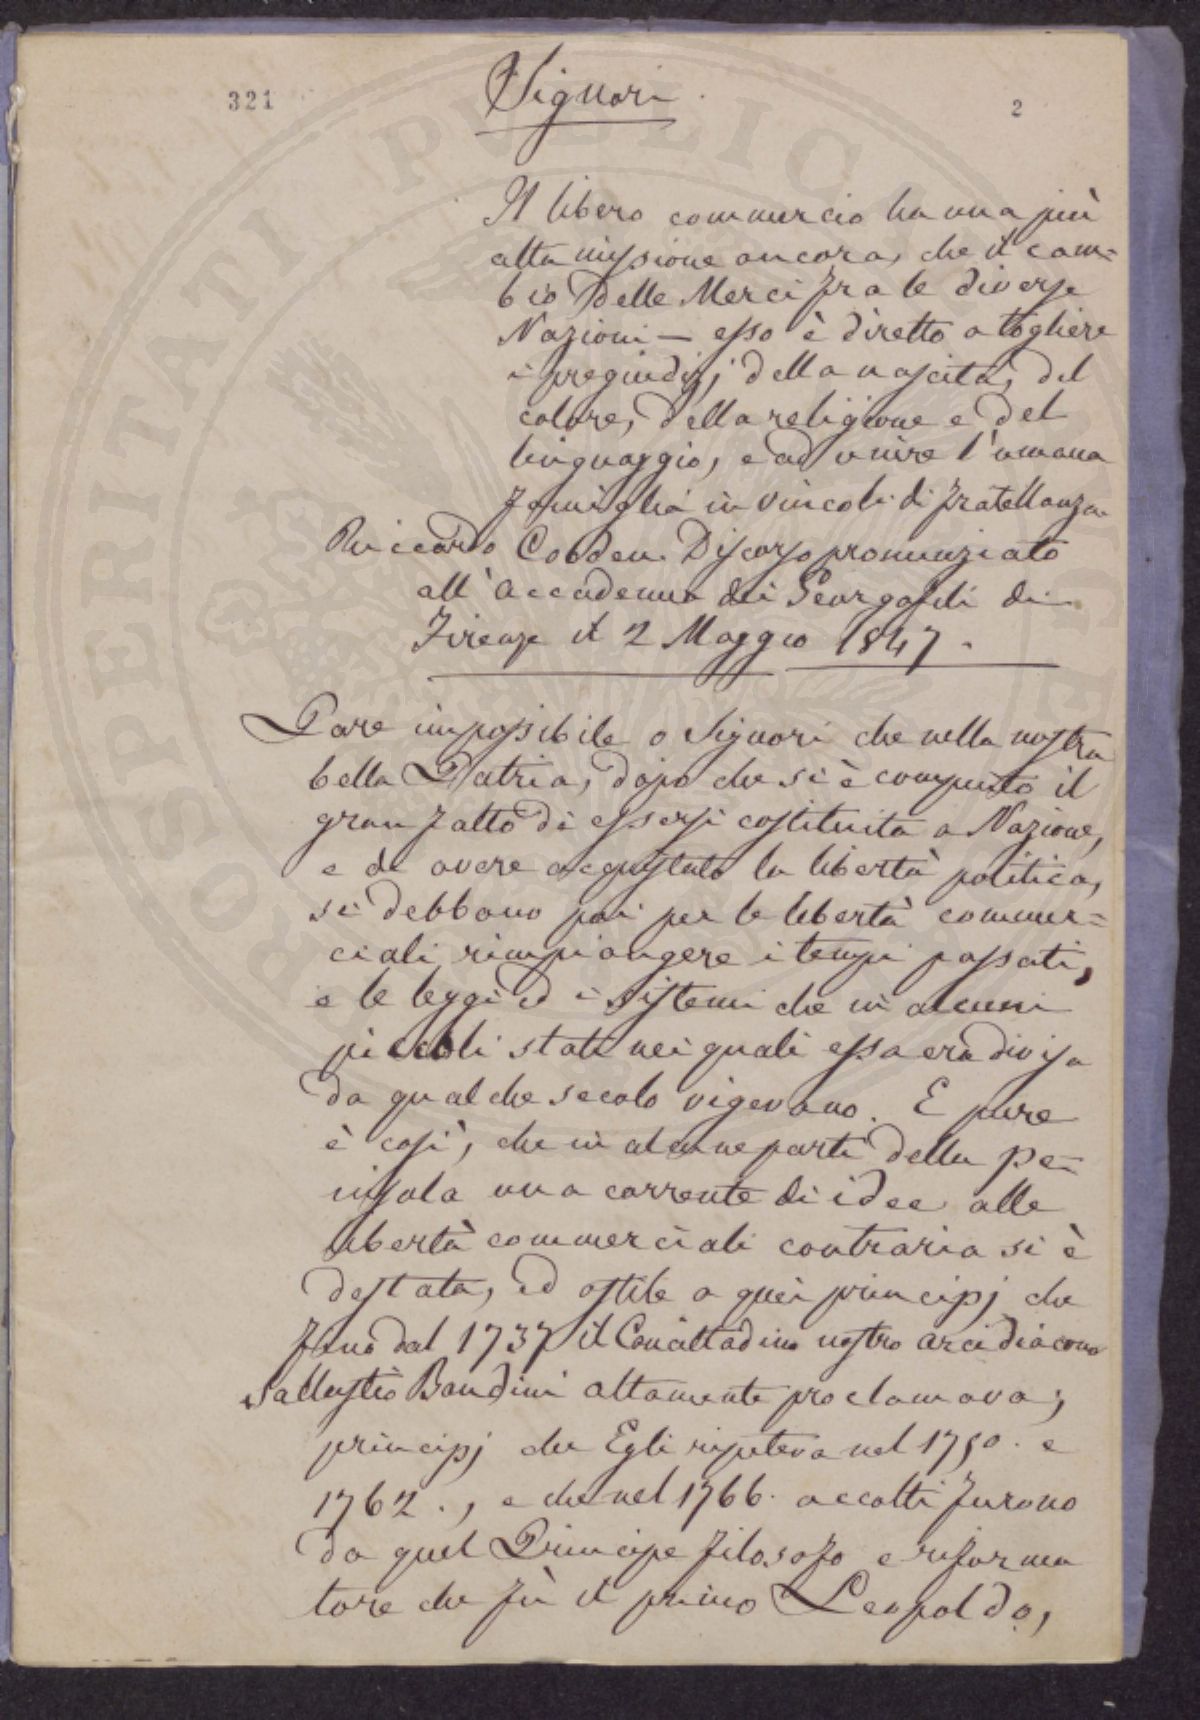 321
2
Signori
Il libero commercio ha una più
alta missione ancora, che il cam=
bio delle Merci fra le diverse
Nazioni — esso è diretto a togliere
i pregiudizj della nascita, del
colore, della religione e del
linguaggio, e ad unire l'umana
famiglia in vincoli di fratellanza
Riccardo Cobden. Discorso pronunziato
all'Accademia dei Georgofili di
Firenze il 2 Maggio 1847.
Pare impossibile o Signori che nella nostra
bella Patria, dopo che si è compiuto il
gran fatto di essersi costituita a Nazione,
e di avere acquistato la libertà politica,
si debbano poi per le libertà commer=
ciali rimpiangere i tempi passati,
e le leggi ed i sistemi che in alcuni
piccoli stati nei quali essa era divisa
da qualche secolo vigevano. E pure
è così, che in alcune parti della Pe=
nisola una corrente di idee alle
libertà commerciali contraria si è
destata, ed ostile a quei principj che
fino dal 1737 il Concittadino nostro arcidiacono
Sallustio Bandini altamente proclamava;
principj che Egli ripeteva nel 1750. e
1762., e che nel 1766. accolti furono
da quel Principe filosofo e riforma
tore che fù il primo Leopoldo,
PROSPERITATI PUBLICAE AUGENDAE